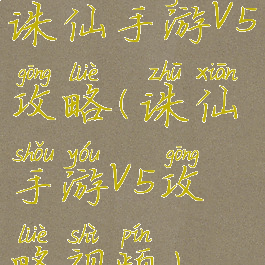 诛仙手游V5
gōng lüè zhū xiān
攻略(诛仙
shǒu yóu gōng
手游V5攻
lüè shì pín
略视频)